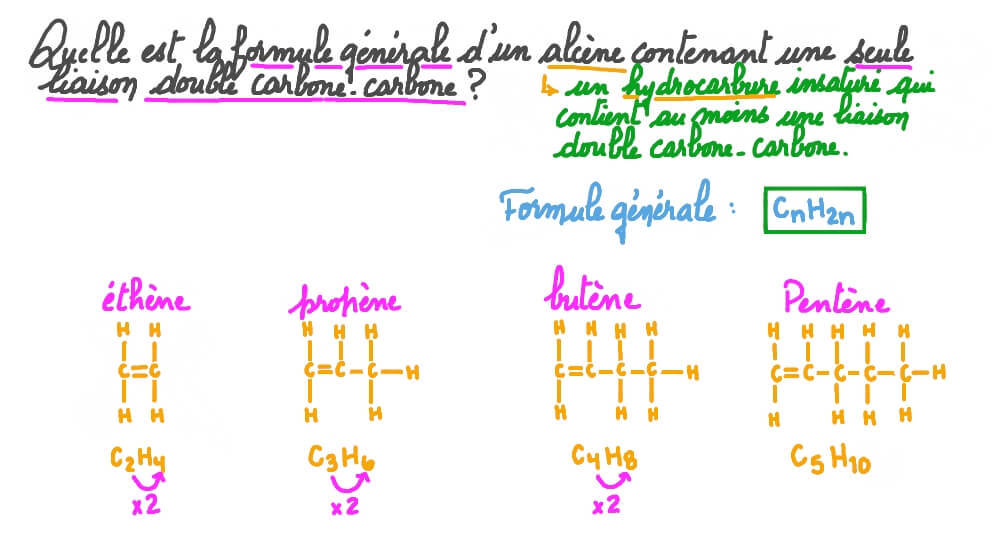 Quelle est la formule générale d'un alcène contenant une seule
liaison double carbone-carbone ?
↳ un hydrocarbure insaturé qui
contient au moins une liaison
double carbone-carbone.
Formule générale : CnH2n
éthène propène butène Pentène
H H H H H H H H H H H H H H
C=C C=C-C-H C=C-C-C-H C=C-C-C-C-H
H H H H H H H H H H H
C2H4 C3H6 C4H8 C5H10
x2 x2 x2